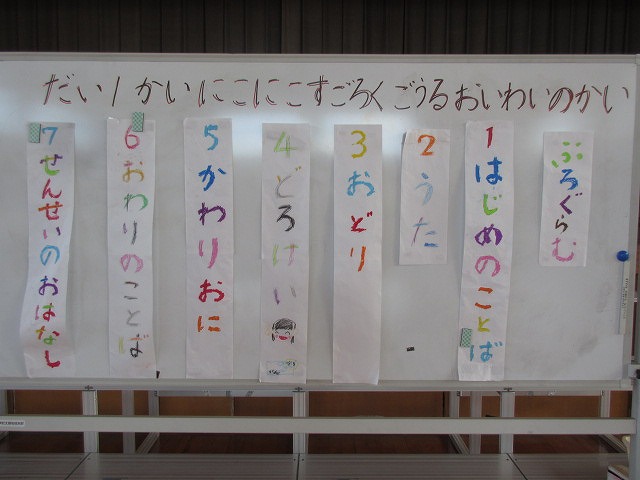 だい1かいにこにこすごろくごうるおいわいのかい
ぷろぐらむ
1はじめのことば
2うた
3おどり
4どろけい
5かわりおに
6おわりのことば
7せんせいのおはなし